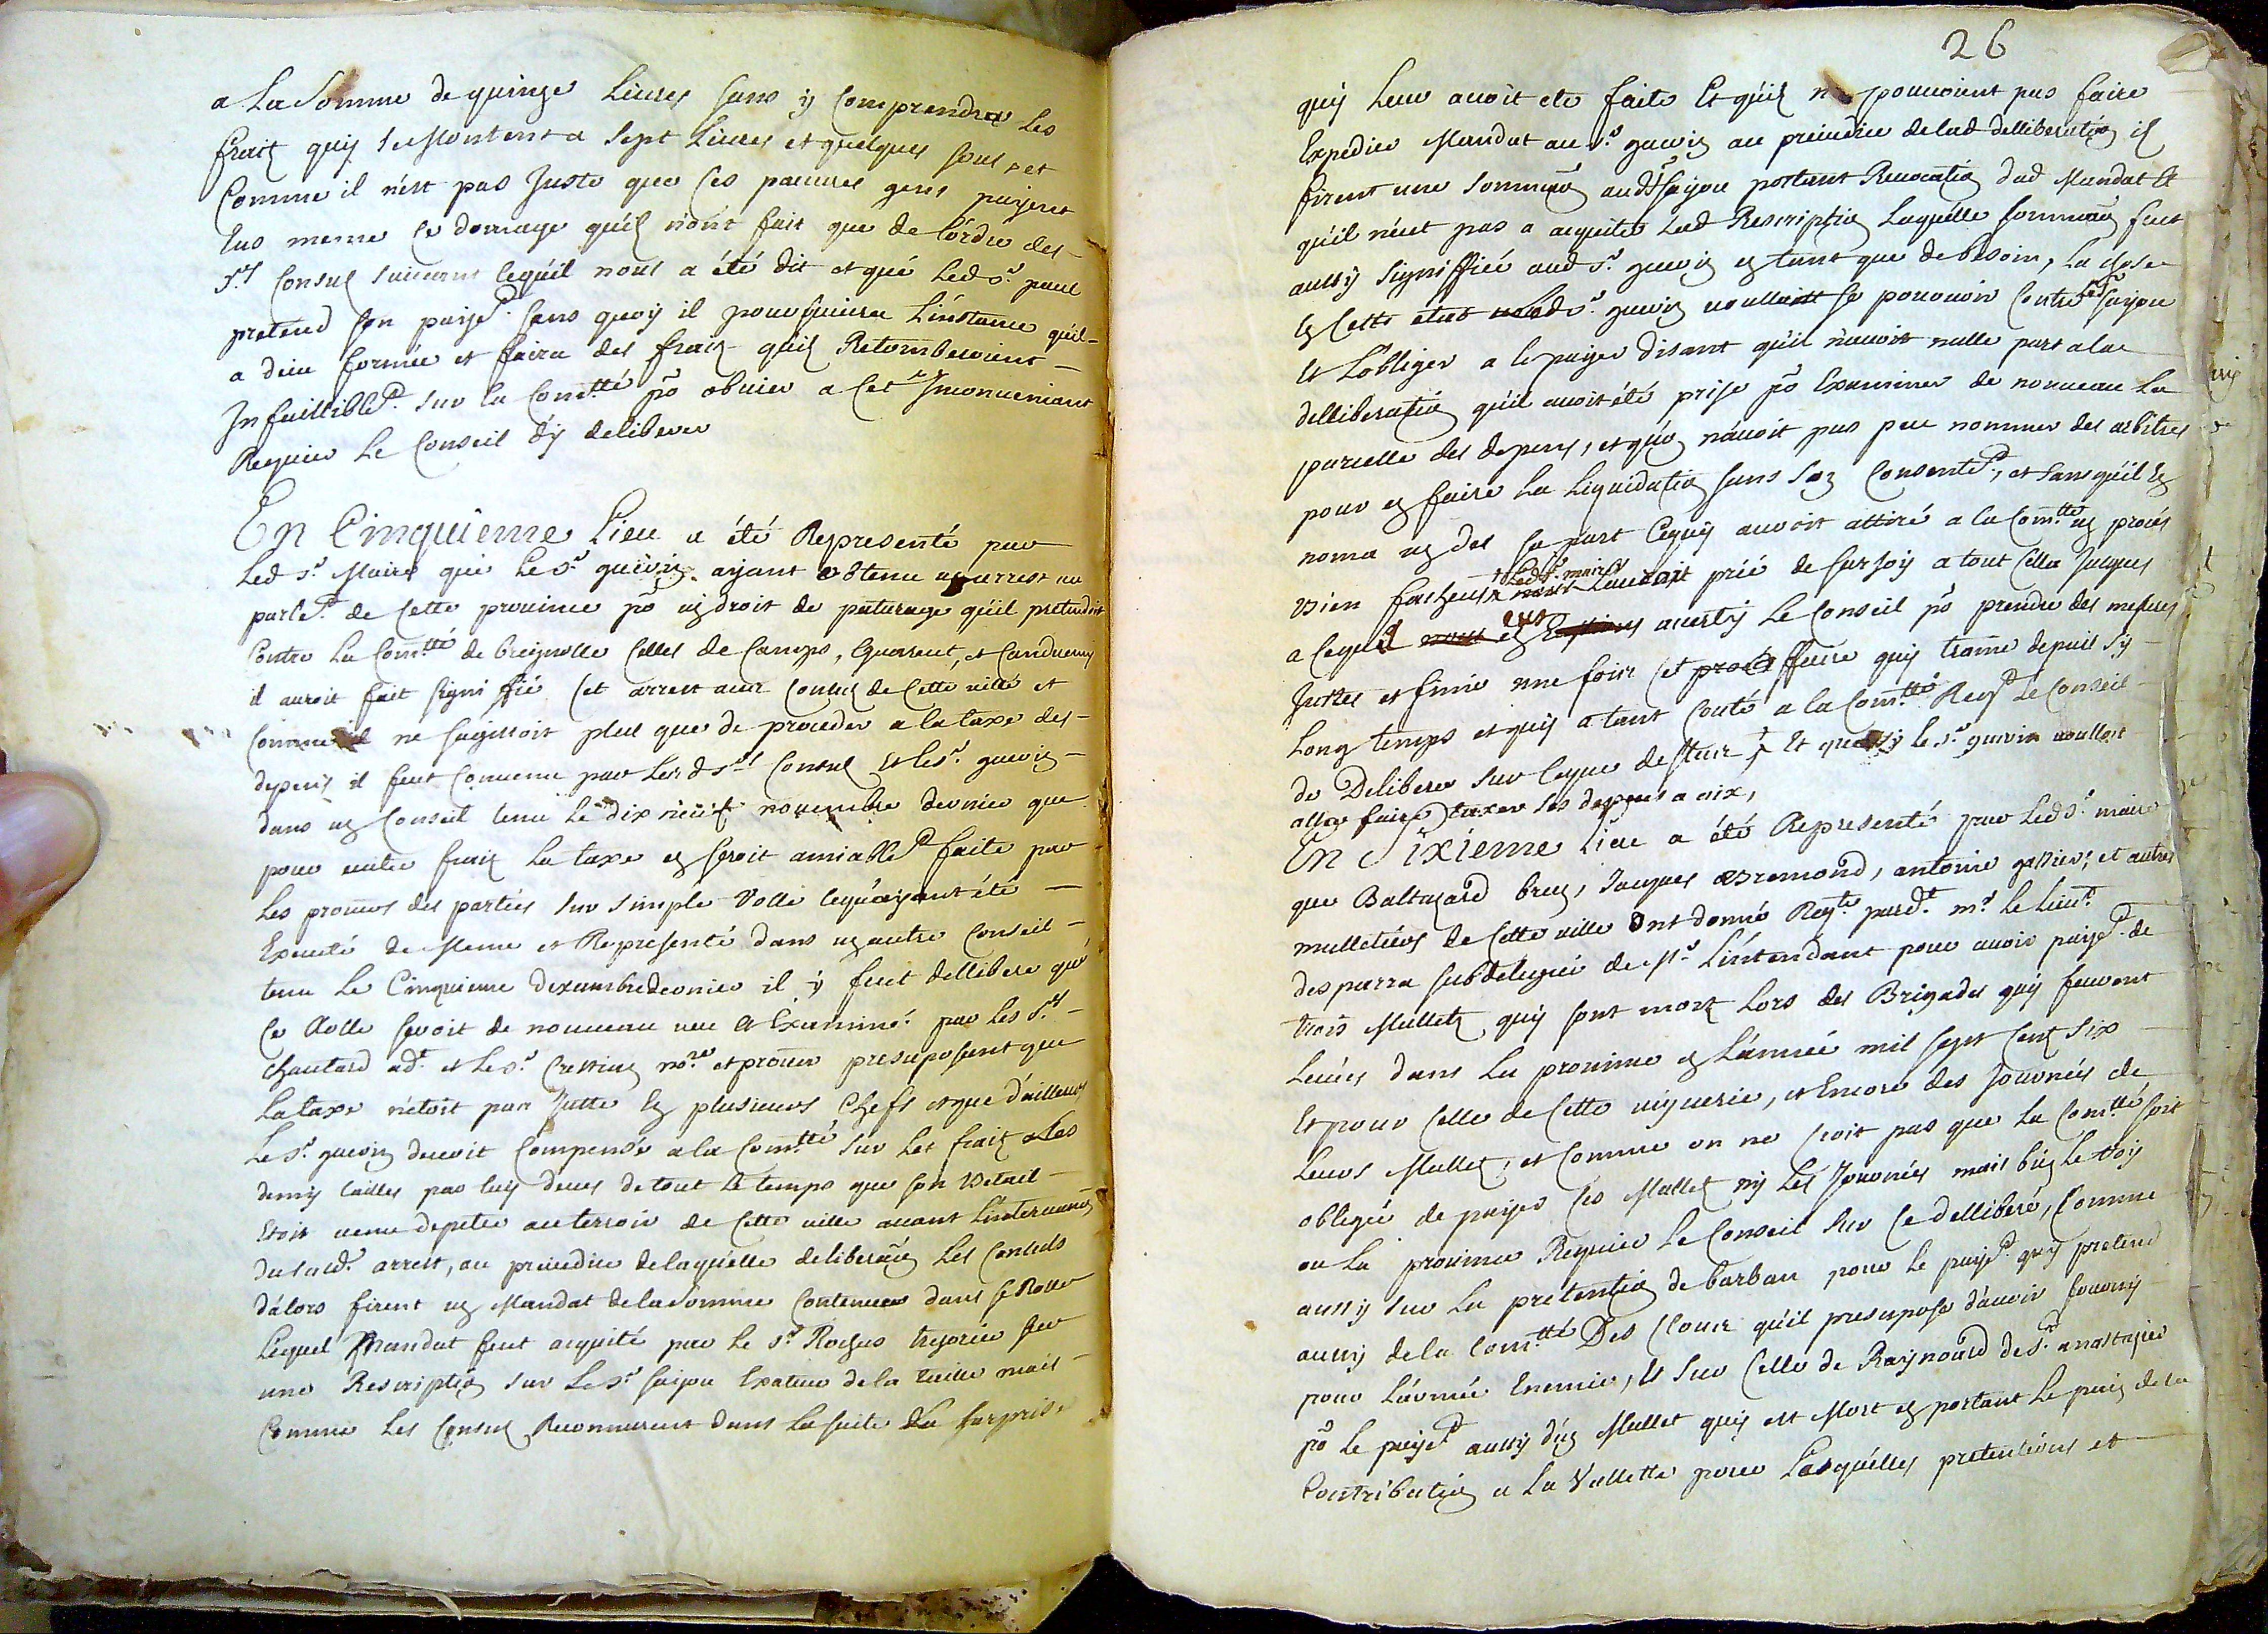 a La Somme de quinze Liures sans y Comprendre Les
fraix quy se Montent a Sept Liures et quelques sous, et
Comme il nést pas Juste que ces pauures gens payent
Eus meme Ce domage quíl nónt fait que de lórdre des
Srs Consuls suiuant lequíl nous a été dit et que Led Sr paul
pretend son payemt. sans quoy il poursuiura Línstance quíl
a deia formée et faira des fraix quíls Retomberoient
Infailliblemt. sur la Comtté po obuier a Cet Inconueniant
Requier Le Conseil dÿ deliberer
En Cinquieme Lieu a été Representé par
Led Sr Maire que Le Sr gueüin ayant obtenu ug arrest au
parlemt. de Cette prouince po ug droit de paturage quíl pretendoit
Contre La Comtté de breignolle Celles de Camps, Gareout, et Canduemy
il auroit fait signiffié Cet arrest aux Consuls de Cette ville et
Comme il ne sagissoit plus que de proceder a la taxe des
depens il feut Conuenu par Lesd Srs Consuls et le Sr. gueuin
dans ug Conseil tenu Le dix neuf nouembre dernier que
pour euiter fraix La taxe eg seroit amiablemt faite par
Les procurs des parties sur simple Rolle lequel ayant été
Executé de Meme et Representé dans ug autre Conseil
tenu Le Cinquieme dexambre dernier il ÿ feut dellibere que
Ce Rolle seroit de nouueau veu et Examiné par les Srs
Chautard adt et Le Sr. Crestian nore et procur presuposant que
La taxe nétoit pas Juste Eg plusieurs Chefs et que dáilleurs
Le Sr. gueuin deuoit Compensér a la Comtté Sur Les fraix Les
demy tailles pas luy deues de tout Le temps que son Betail
Etoit venu depaitre au terroir de Cette ville auant Línteruantion
dususd. arrest, au preiudice de laquélle deliberaõn Les Consuls
dálors firent ug Mandat de la Somme Contenue dans Ce Rolle
Lequel Mandat feut acquité par le Sr Roches tresorier sur
une Rescription sur Le Sr sayou Exateur de la taille mais
Comme Les Consuls Reconnurent dans La suite La surprise
26
quy Leur auoit eté faite Et quíls ne pouuoient pas faire
Expedier Mandat au Sr. gueuin au preiudice de lad delliberatiõn ils
firent une sommaõn aud Sr Sayou portant Reuocatiõn dud Mandat et
quíl néut pas a acquiter Lad Rescriptiõn Laquélle sommaõn feut
aussy signiffiée aud Sr. gueuin eg tant que de besoin, La chose
eg Cette etat Led Sr. gueuin voulloit se pouruoir Contre led Sayou
et Lóbliger a le payer disant quíl nauoit nulle part a la
delliberatiõn quíl auoit été prise po Examiner de nouueau La
parcelle des depens, et quóg náuoit pas peu nommer des arbitres
pour eg faire La Liquidatiõn sans Son Consentemt, et sans quíl Eg
noma ug de sa part Cequy auroit attiré a la Comtté ug procés
Bien facheux Led Sr. maire Lauroit prié de sursoy a tout Cella Jusques
a Cequíl eut auerty Le Conseil po prendre des mesures
Justes et finir une fois Cet affaire quy traine depuis sy
Long temps et quy a tant Couté a la Comtté Reqt Le Conseil
de Deliberer sur Ceque dessur Et que sy le Sr. gueuin voulloit
aller faire taxer ses depens a aix,
En Sixieme Lieu a été Representé par Led Sr. maire
que Baltazard brun, Jacques Bremond, antoine gassier, et autres
mulletiérs de Cette ville Ont donné Reqte. pardt. mr Le Lieut.
desparra subdelegué de Mr. Líntendant pour auoir payemt. de
trois Mullets quy sont morts Lors des Brigades quy feurent
Leuées dans La prouince eg Lánnée mil Sept Cent Six
Et pour Celle de Cette viguerie, et Encore des Journées de
Leurs Mullets, et Comme on ne Croit pas que La Comtté soit
obligée de payer Ces Mullets ny Les Journées mais big Le Roy
ou La prouince Requier Le Conseil Sur Ce delliberé, Comme
aussy sur La pretentiõn de barbau pour le payemt. quy pretend
aussy de la Comtté Des Cloux quíl presuposse dáuoir fourny
pour Lármée Enemie, et sur Celle de Raynoard de St. anastazie
po le payemt aussy dúg Mullet quy est Mort eg portant Le pain de la
Contributiõn a La Vallette pour Lesquélles pretentions et